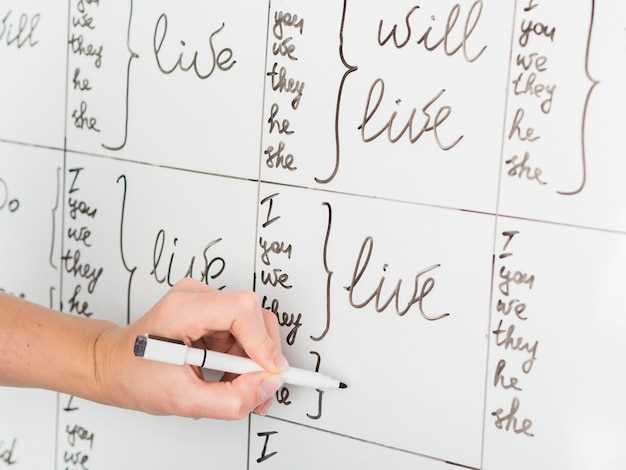 will
you
we
they
he
she
live
you
we
they
he
she
will
live
I
you
we
they
he
she
I
you
we
they
he
live
I
you
we
they
live
I
you
we
they
he
she
I
you
we
I